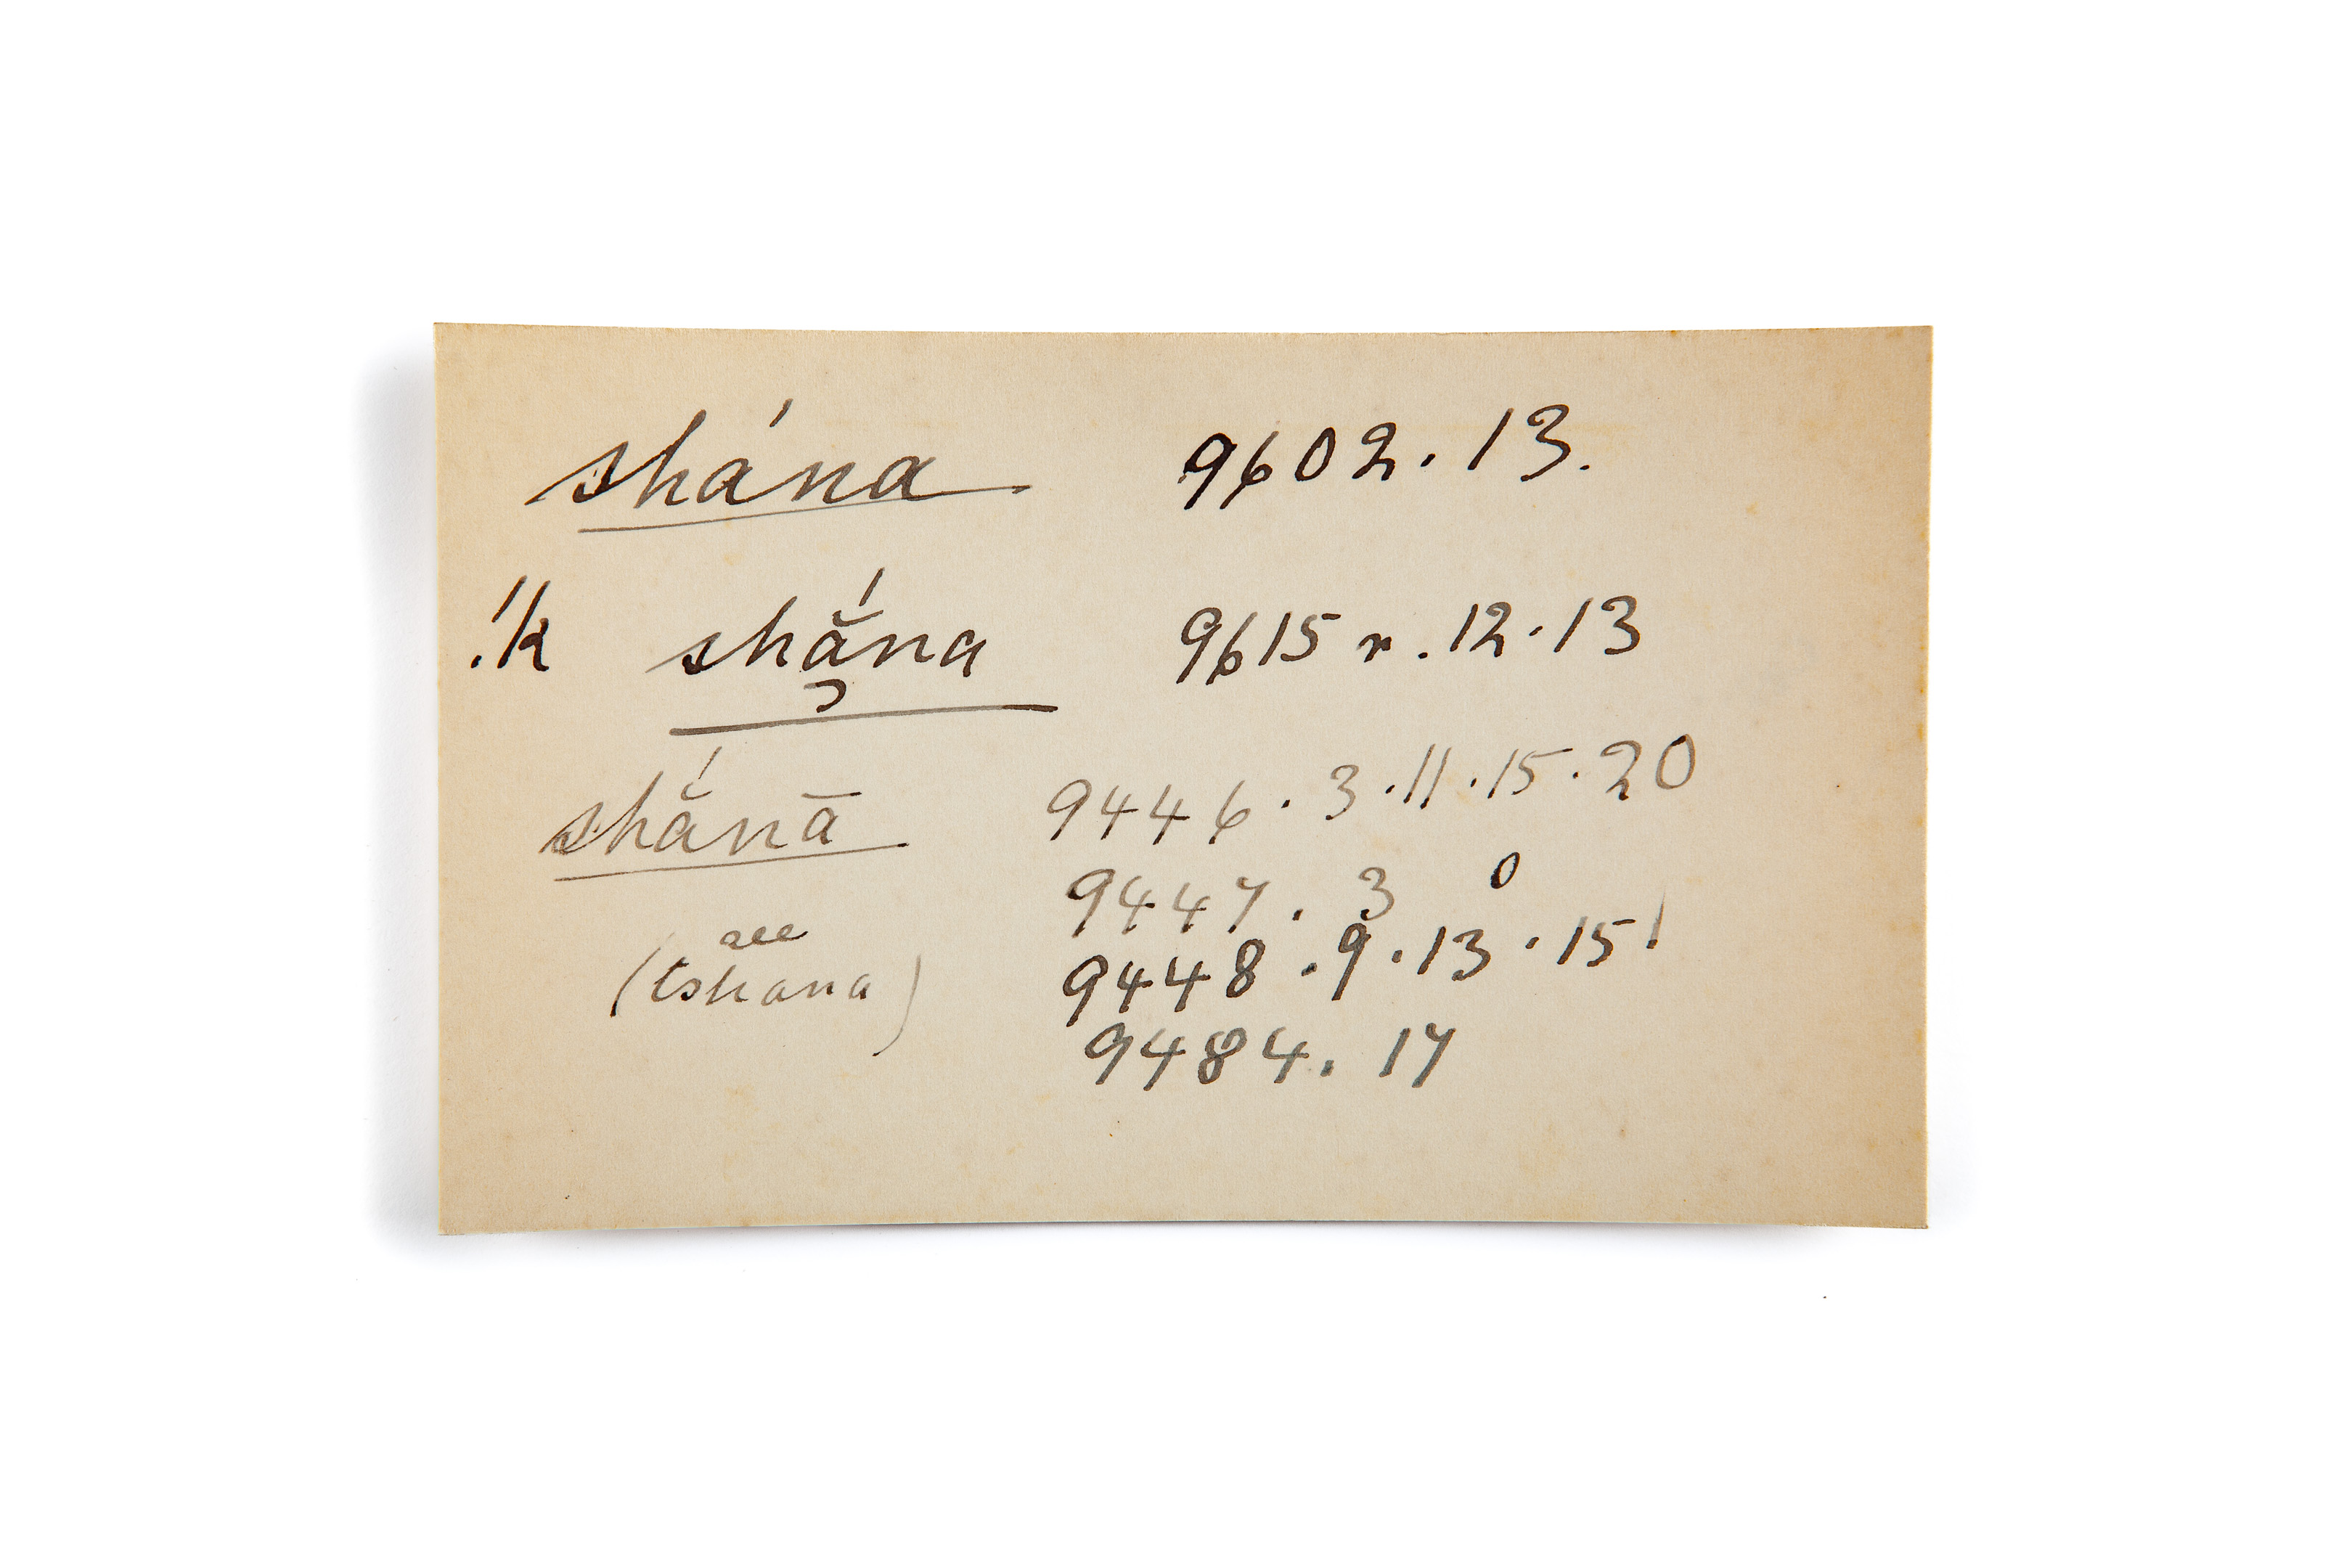 shána 9602. 13.
!k shắ̡na 9615 r. 12. 13
shắnā 9446. 3. 11. 15. 20
9447. 3 0
see 9448. 9. 13. 15!
(tshana)
9484. 17